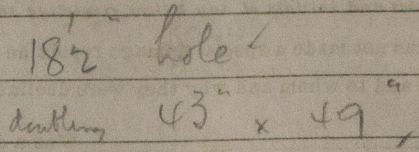 18½" hole
doubling 43" x 49"